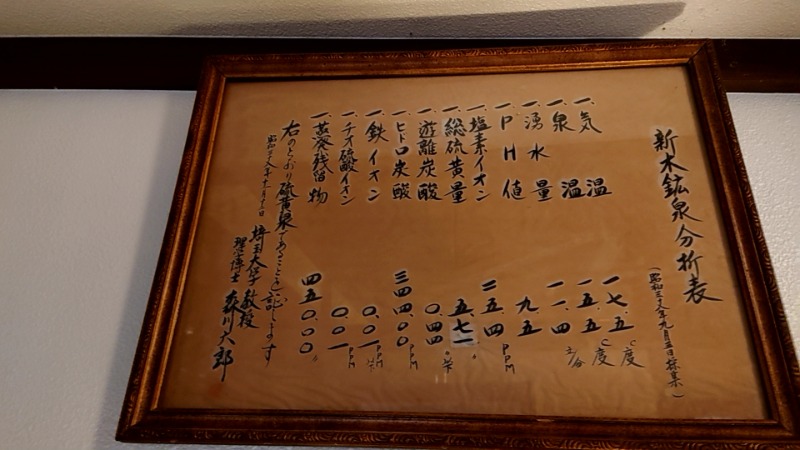 新木鉱泉分折表
(昭和三十八年九月五日採集)
一、気温 一七.五 C°度
一、泉温 一五.五 C°度
一、湧水量 一一.四 立/分
一、PH値 九.五
一、塩素イオン 二五.四 PPM
一、総硫黄量 五.七一 〃
一、遊離炭酸 〇.四四 〃
一、ヒドロ炭酸 三四四.〇〇 PPM
一、鉄イオン 〇.〇一 PPM
一、チオ硫酸イオン 〇.〇一 PPM
一、蒸発残留物 四五〇.〇〇 〃
右のとおり硫黄泉であることを証します
埼玉大学教授
理学博士 森川大郎